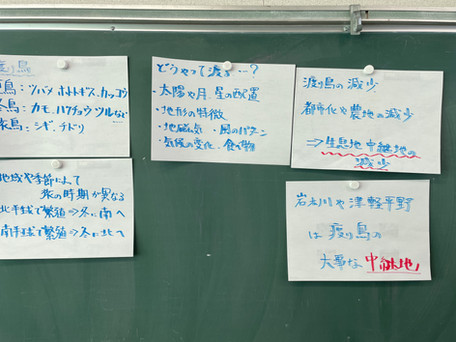 渡り鳥
鳥：ツバメ ホトトギス、カッコウ
鳥：カモ、ハクチョウ ツルなど
鳥：シギ、チドリ
地域や季節によって
旅の時期が異なる
北半球で繁殖⇒冬に南へ
南半球で繁殖⇒冬に北へ
どうやって渡る…？
・太陽や月、星の配置
・地形の特徴
・地磁気・風のパターン
・気候の変化、食べ物
渡り鳥の減少
都市化や農地の減少
⇒生息地 中継地の
減少
岩木川や津軽平野
は 渡り鳥の
大事な 中継地！